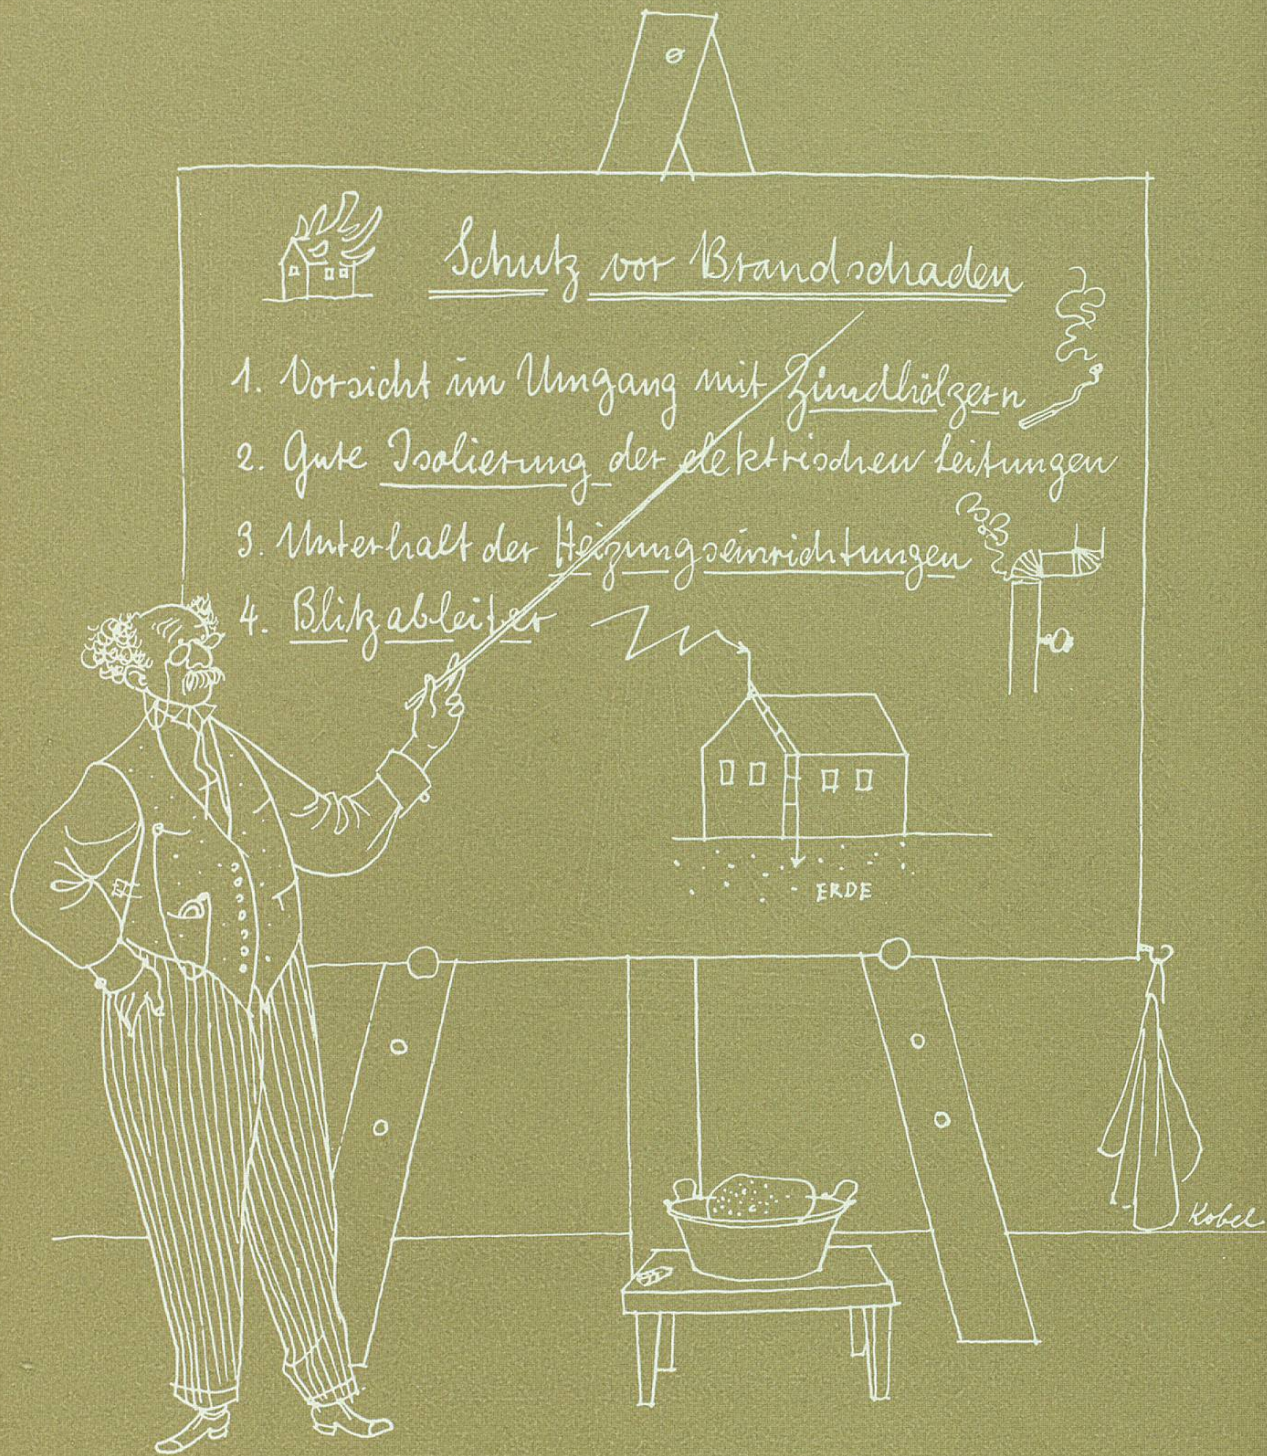 Schutz vor Brandschaden
1. Vorsicht im Umgang mit Zündhölzern
2. Gute Isolierung der elektrischen Leitungen
3. Unterhalt der Heizungseinrichtungen
4. Blitzableiter
ERDE
Kobel